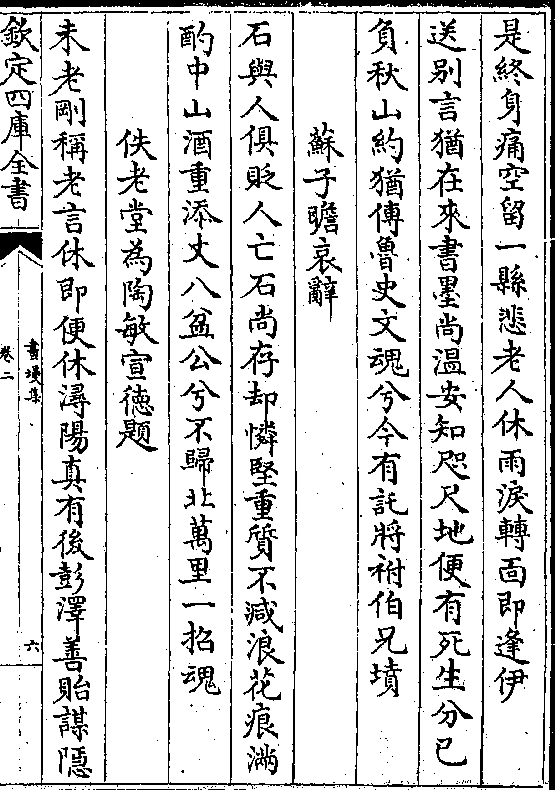 是終身痛空留一縣悲老人休雨淚轉面即逢伊
送别言猶在來書墨尚溫安知咫尺地便有死生分已
負秋山約猶傳魯史文魂兮今有託將祔伯兄墳
蘇子瞻哀辭
石與人俱貶人亡石尚存却憐堅重質不減浪花痕滿
酌中山酒重添丈八盆公兮不歸北萬里一招魂
佚老堂為陶敏宣德題
未老剛稱老言休即便休潯陽真有後彭澤善貽謀隱
欽定四庫全書
畫墁集
卷二
六